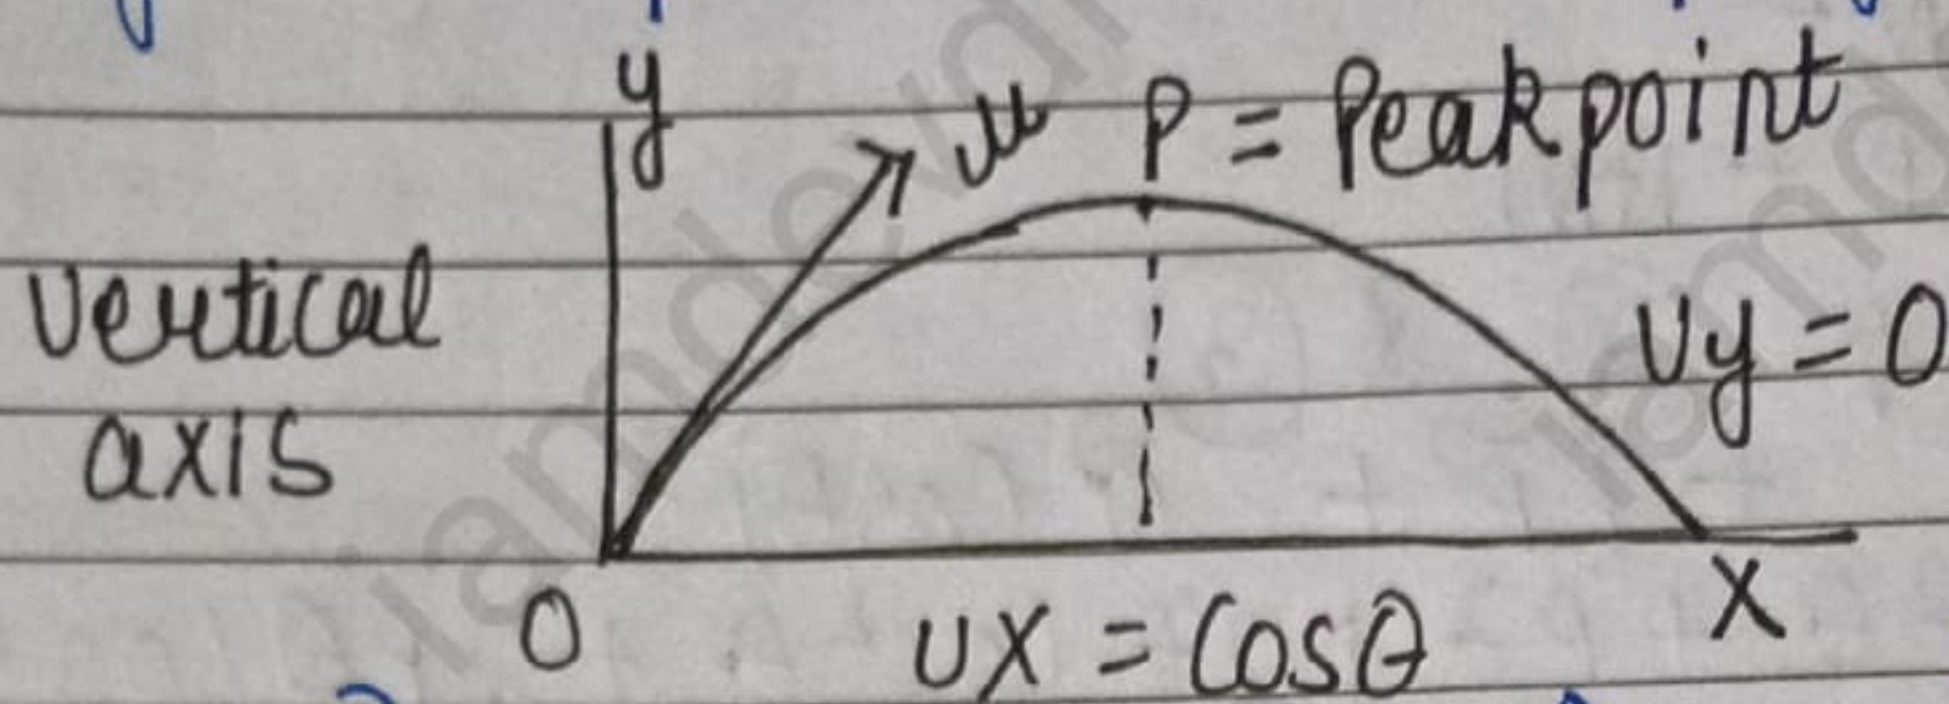 y
u P = Peakpoint
Vertical
axis
Vy = 0
O
X
UX = Cosθ